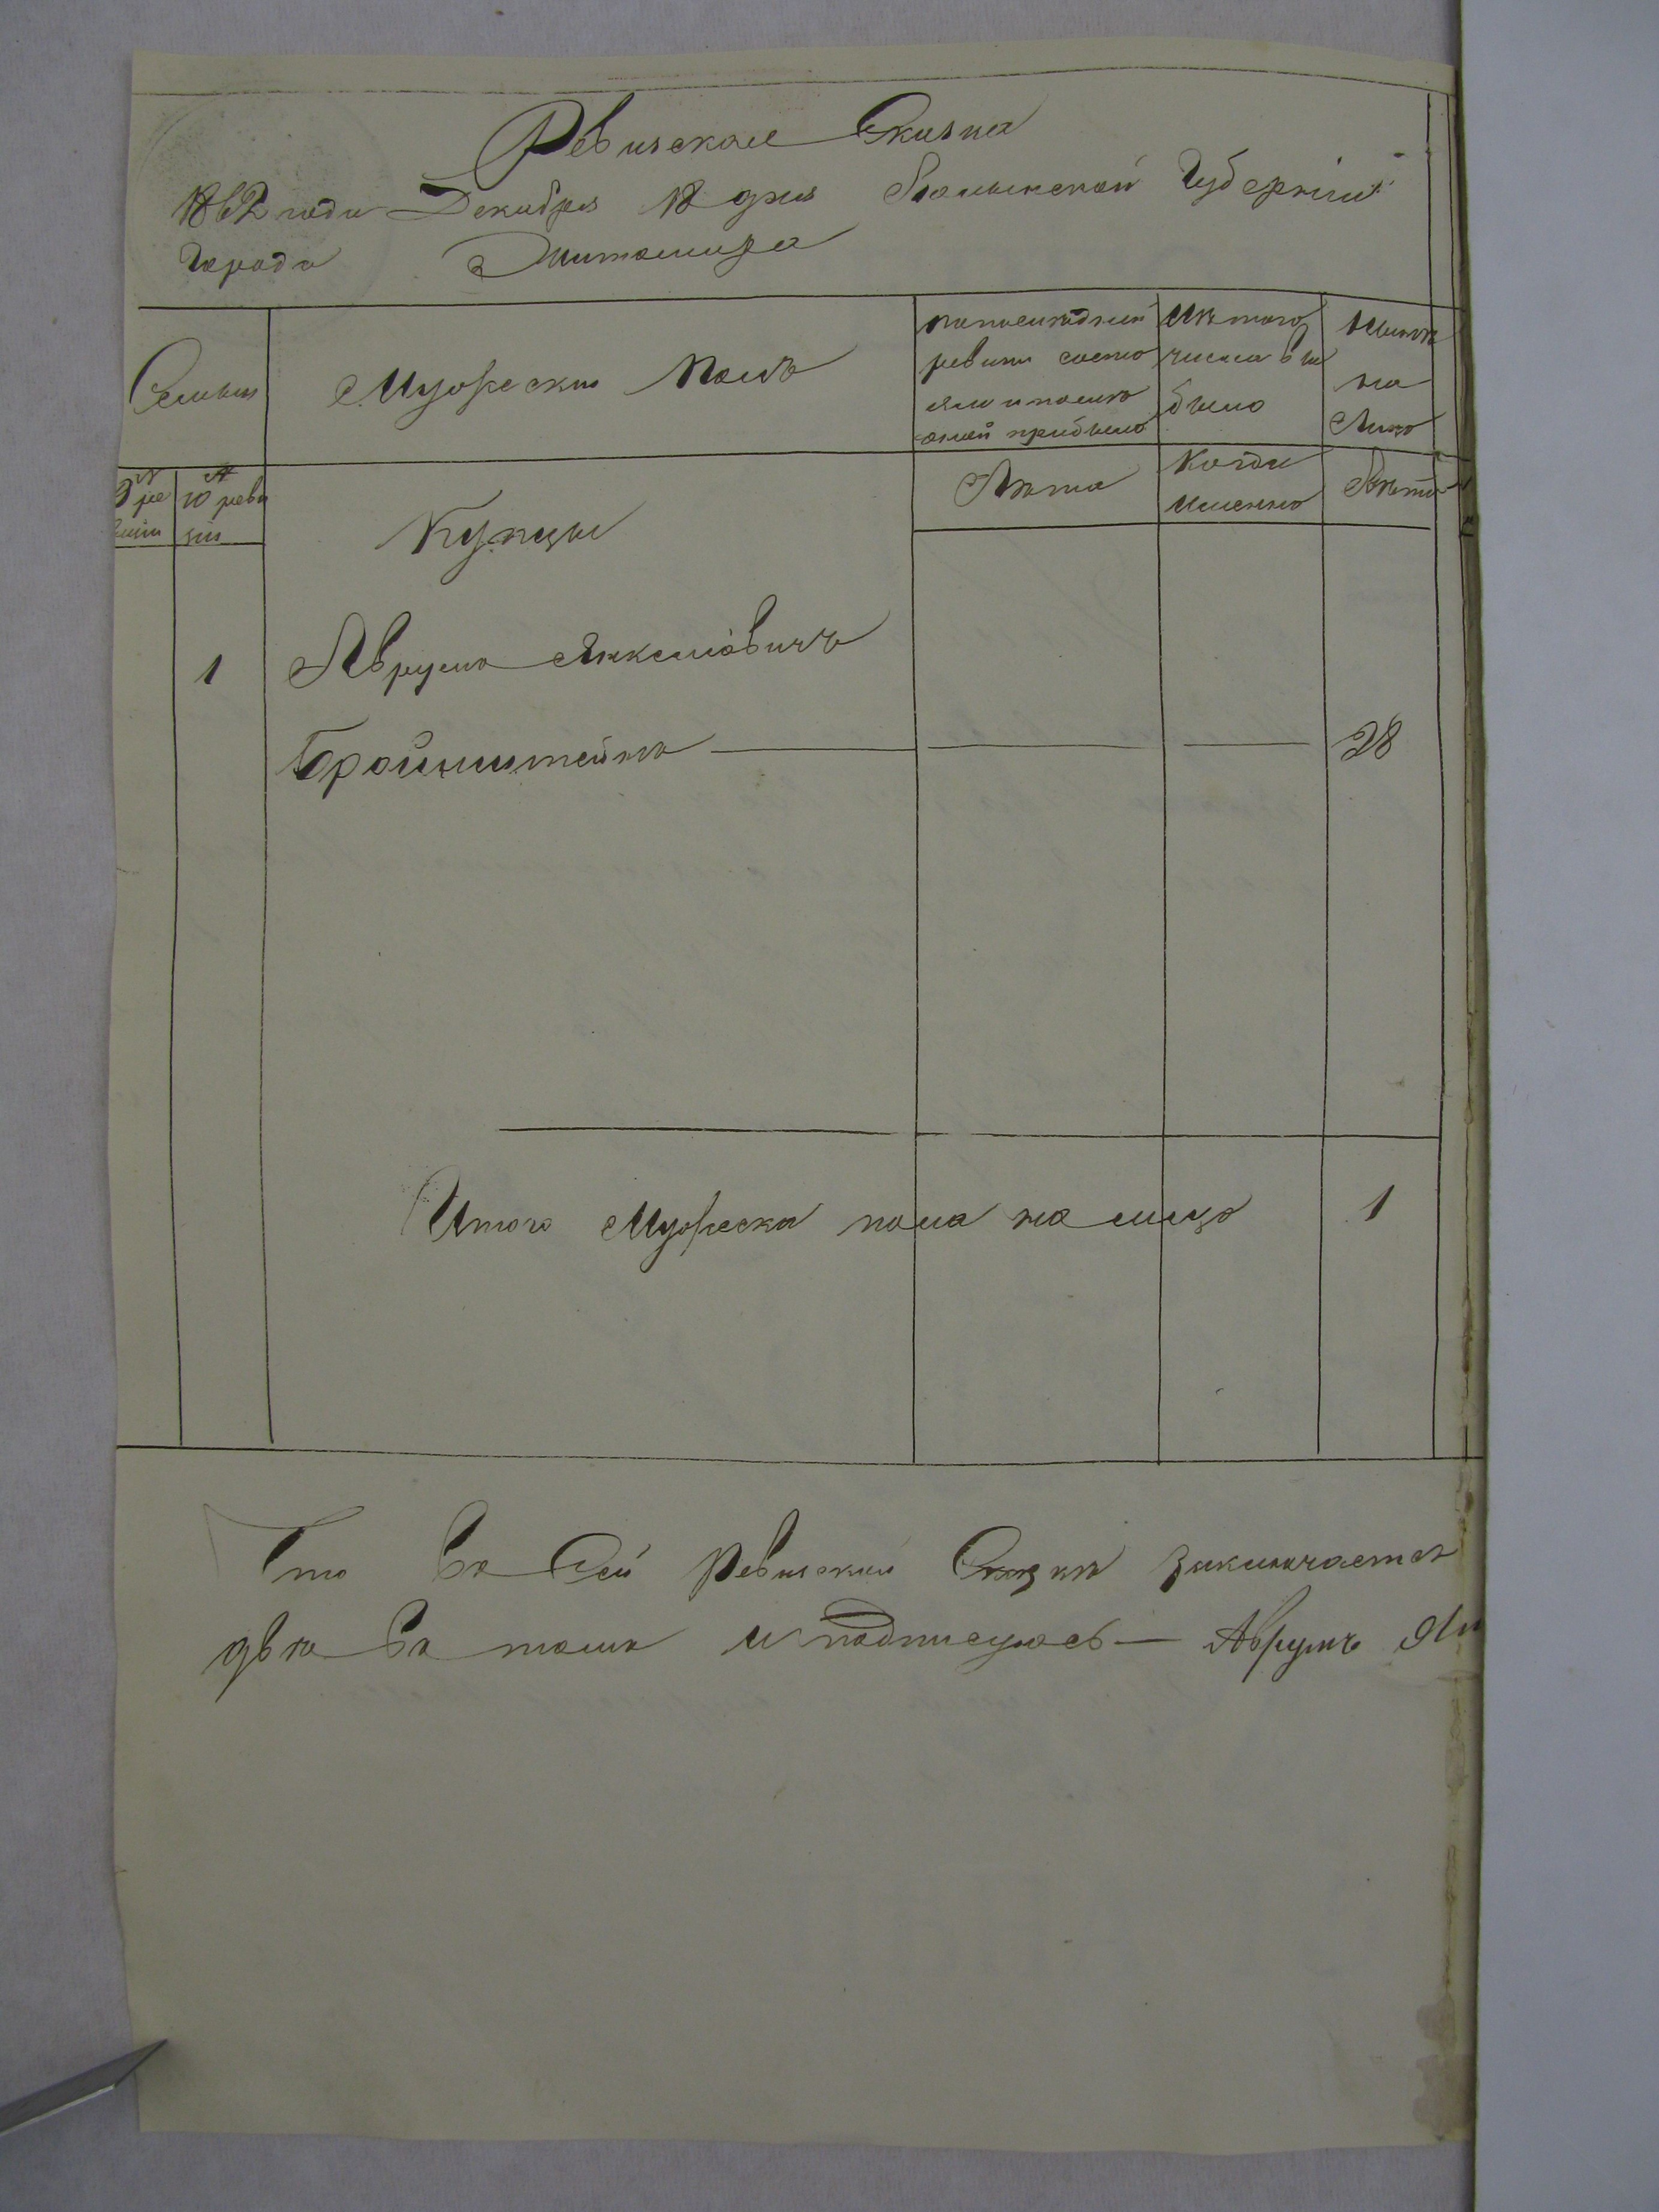 Ревизская Сказка
1862 года Декабря 18 дня Волынской Губерніи
Города Житомира
Семьи
Мужеский Полъ
По последней ревизи состояло и после оной прибыло
Изъ того числа выбыло
Нынѣ на Лицо
№ 9 ревизіи
№ 10 ревизіи
Купцы
Лѣта
Когда именно
Лѣта
1 Аврумъ Янкеліовичъ
Бройнштейнъ 28
Итого Мужеска пола на лицо 1
Что въ Сей Ревизской Сказки заключается
два въ томъ и подписуюсь — Аврумъ Ян